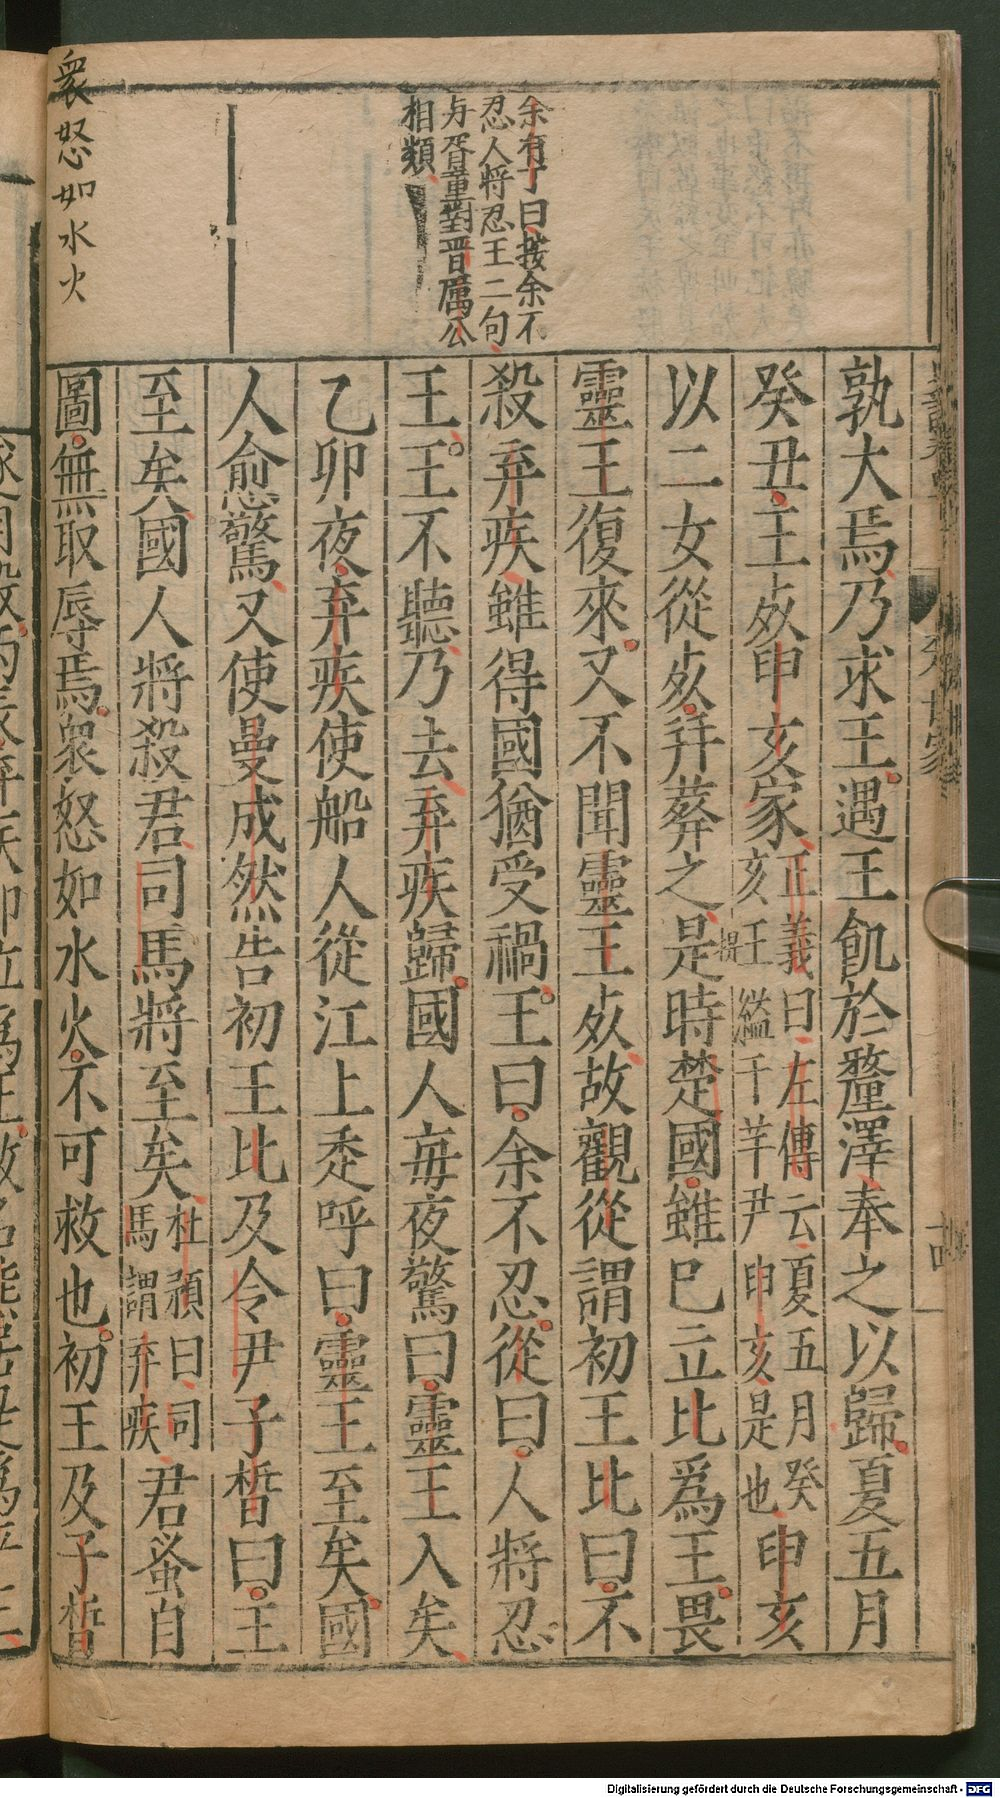 余有丁曰按余不
忍人將忍王二句
与胥童對晋厲公
相類
衆怒如水火
孰大焉乃求王遇王飢於釐澤奉之以歸夏五月
癸丑王死申亥家正義曰左傳云夏五月癸亥王縊于芊尹申亥是也申亥
以二女從死幷葬之是時楚國雖巳立比爲王畏
靈王復來又不聞靈王死故觀從謂初王比曰不
殺弃疾雖得國猶受禍王曰余不忍從曰人將忍
王王不聽乃去弃疾歸國人每夜驚曰靈王入矣
乙卯夜弃疾使船人從江上走呼曰靈王至矣國
人愈驚又使曼成然告初王比及令尹子晳曰王
至矣國人將殺君司馬將至矣杜預曰司馬謂弃疾君蚤自
圖無取辱焉衆怒如水火不可救也初王及子晳
Digitalisierung gefördert durch die Deutsche Forschungsgemeinschaft - DFG